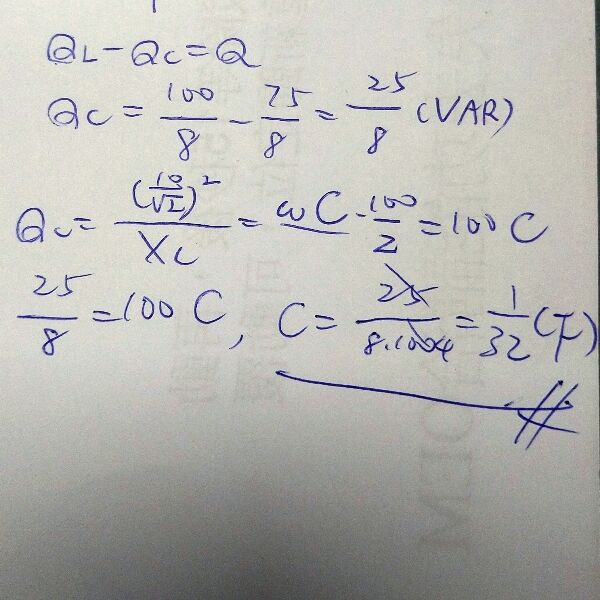 QL-QC=Q
QC=100/8-75/8=25/8(VAR)
QC=(10/√2)²/XC=ωC·100/2=100C
25/8=100C, C=25/8·100 4=1/32(F)